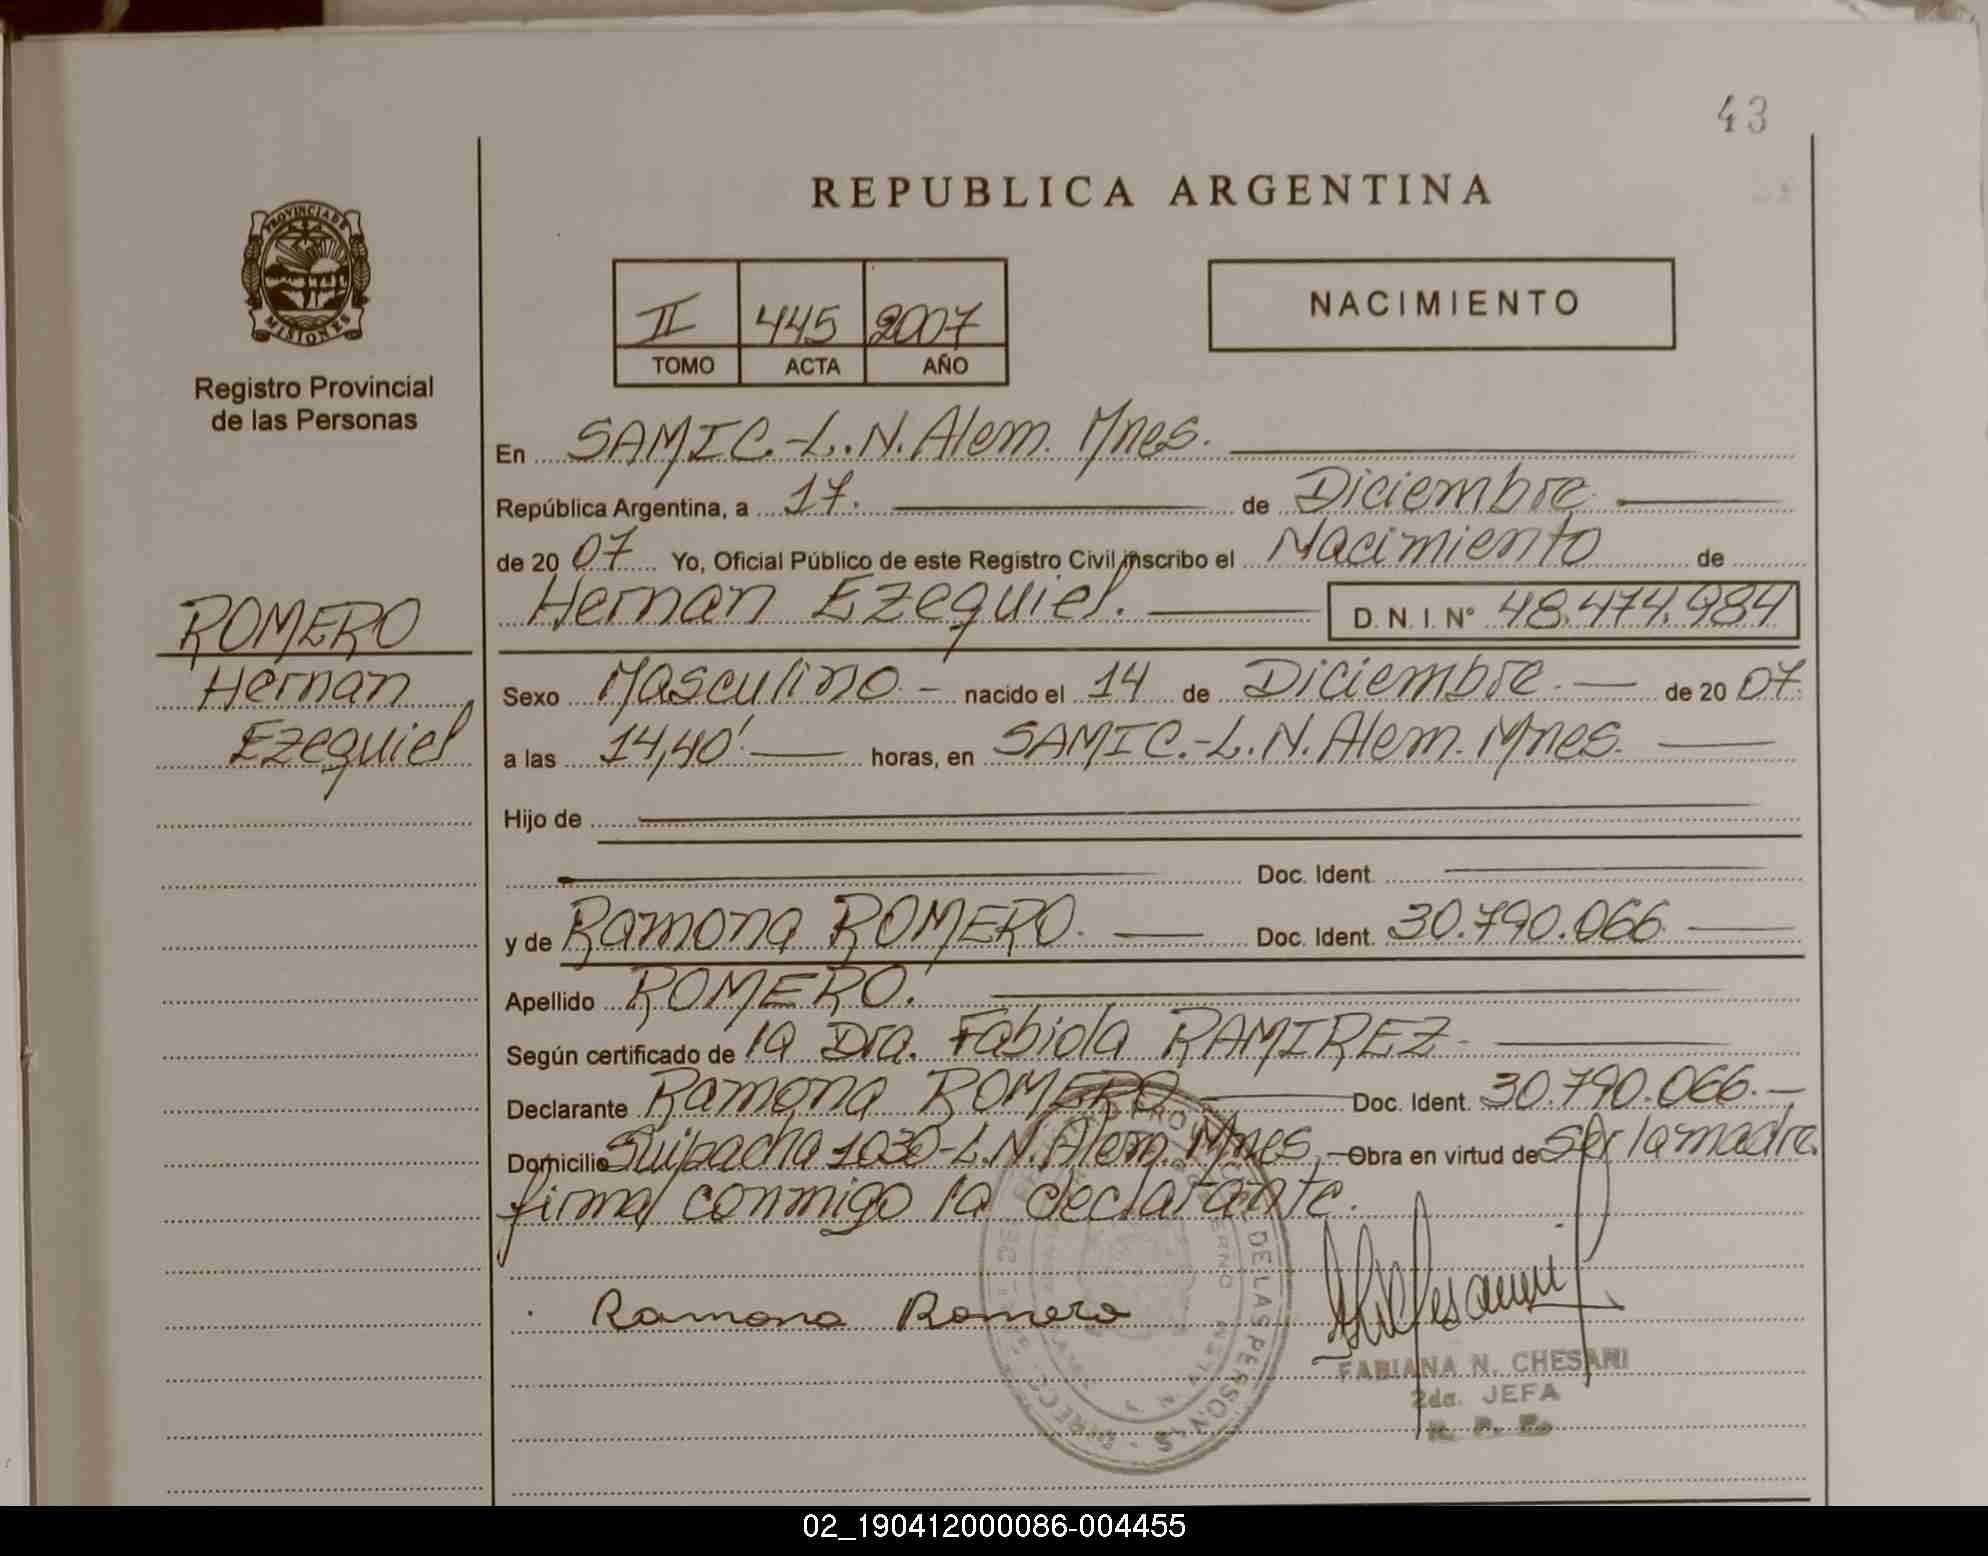 43
REPUBLICA ARGENTINA
PROVINCIA DE
MISIONES
Registro Provincial
de las Personas
II 445 2007
TOMO ACTA AÑO
NACIMIENTO
En SAMIC.-L.N. Alem. Mnes.
República Argentina, a 17. de Diciembre
de 2007 Yo, Oficial Público de este Registro Civil inscribo el Nacimiento de
Hernan Ezequiel. D.N.I. N° 48.474.984
ROMERO
Hernan
Ezequiel
Sexo Masculino.- nacido el 14 de Diciembre.- de 2007.
a las 14,40' horas, en SAMIC.-L.N. Alem. Mnes.
Hijo de
Doc. Ident.
y de Ramona ROMERO. Doc. Ident. 30.790.066.
Apellido ROMERO.
Según certificado de la Dra. Fabiola RAMIREZ-
Declarante Ramona ROMERO Doc. Ident. 30.790.066.-
Domicilio Suipacha 1030-L.N. Alem. Mnes.- Obra en virtud de ser la madre.
firma conmigo la declarante.
Ramona Romero
DE LAS PERSONAS
FABIANA N. CHESANI
2da. JEFA
02_190412000086-004455